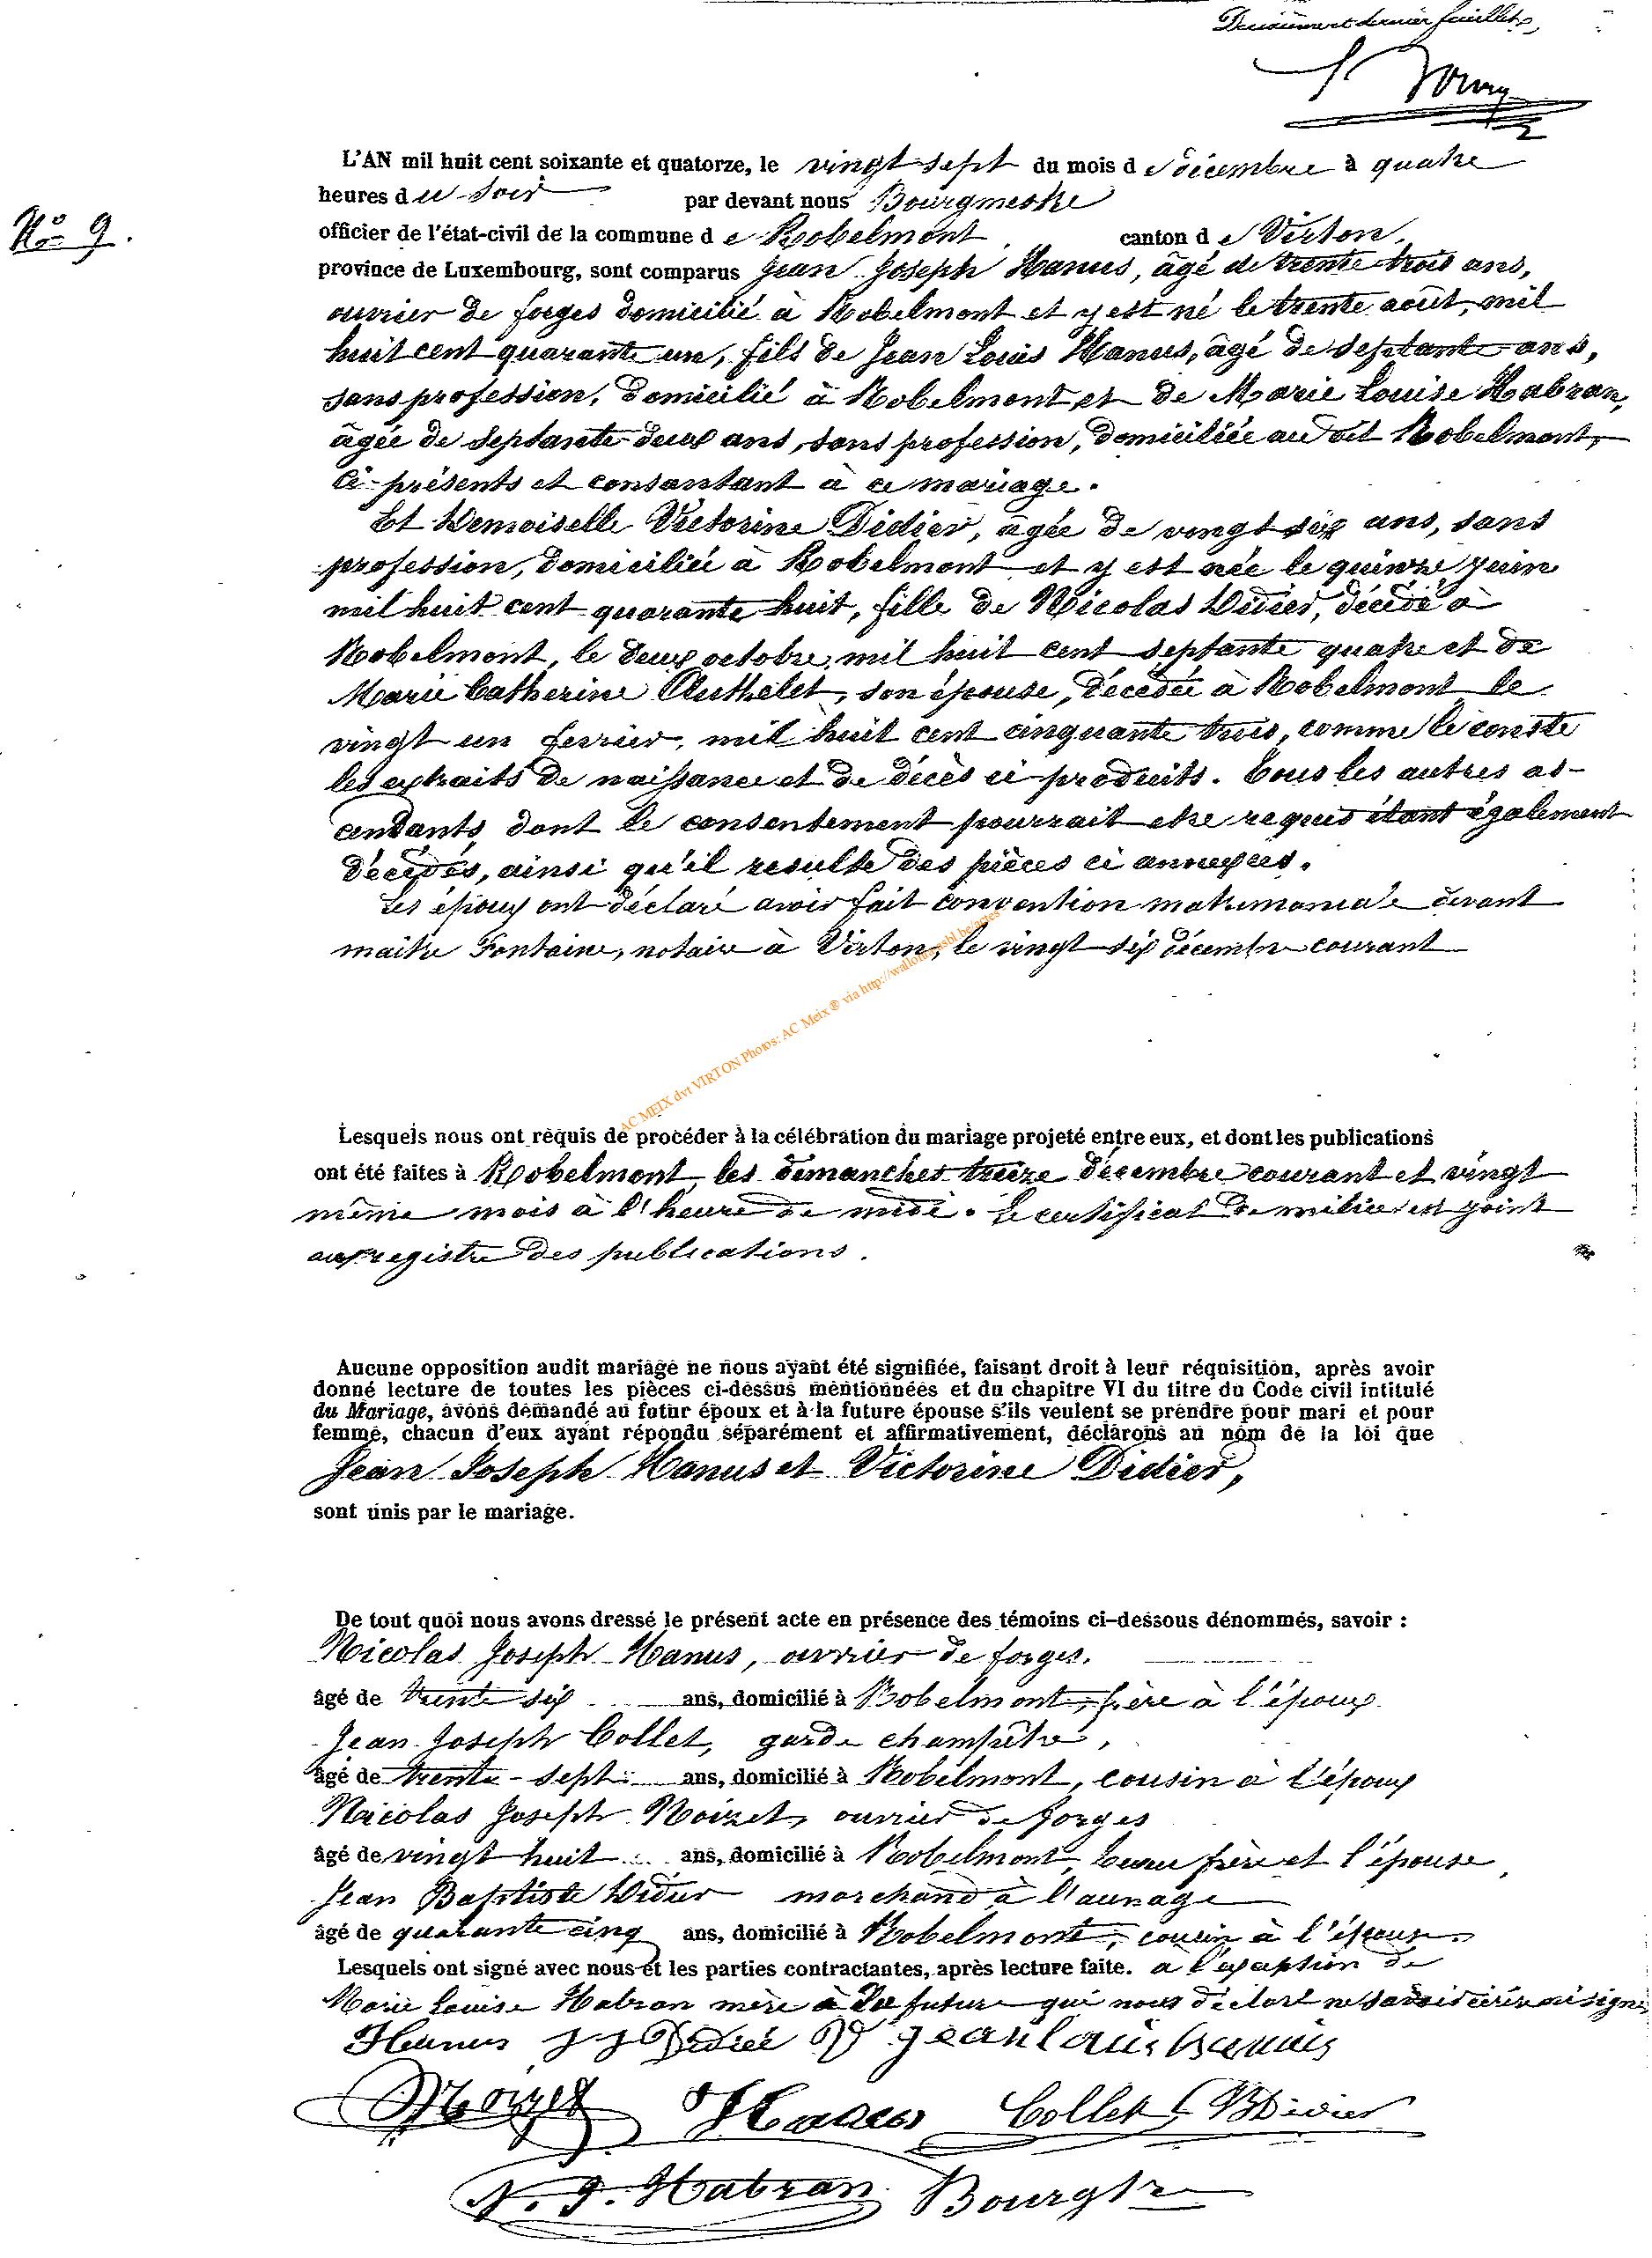 dernier feuillet,
N° 9.
L'AN mil huit cent soixante et quatorze, le vingt sept du mois de décembre à quatre
heures du soir par devant nous Bourgmestre
officier de l'état-civil de la commune de Robelmont canton de Virton,
province de Luxembourg, sont comparus Jean Joseph Hanus, âgé de trente trois ans,
ouvrier de forges domicilié à Robelmont et y est né le trente août, mil
huit cent quarante un, fils de Jean Louis Hanus, âgé de septante ans,
sans profession, domicilié à Robelmont et de Marie Louise Habran,
âgée de septante deux ans, sans profession, domiciliée au dit Robelmont,
ci-présents et consantant à ce mariage.
Et Demoiselle Victorine Didier, âgée de vingt six ans, sans
profession, domiciliée à Robelmont et y est née le quinze juin
mil huit cent quarante huit, fille de Nicolas Didier, décédé à
Robelmont, le deux octobre, mil huit cent septante quatre et de
Marie Catherine Authelet, son épouse, décédée à Robelmont le
vingt un fevrier, mil huit cent cinquante trois, comme le conste
les extraits de naissance et de décès ci-produits. Tous les autres as-
cendants, dont le consentement pourrait etre requis étant également
décédés, ainsi qu'il resulte des pièces ci annexées.
Les époux ont déclaré avoir fait convention matrimoniale devant
maitre Fontaine, notaire à Virton, le vingt six décembre courant
AC MEIX dvt VIRTON Photos: AC Meix ® via http://wallonia-asbl.be/actes
Lesquels nous ont requis de procéder à la célébration du mariage projeté entre eux, et dont les publications
ont été faites à Robelmont, les dimanches treize décembre courant et vingt
même mois à l'heure de midi. Le certificat de milice est joint
au registre des publications.
Aucune opposition audit mariage ne nous ayant été signifiée, faisant droit à leur réquisition, après avoir
donné lecture de toutes les pièces ci-dessus mentionnées et du chapitre VI du titre du Code civil intitulé
du Mariage, avons demandé au futur époux et à la future épouse s'ils veulent se prendre pour mari et pour
femme, chacun d'eux ayant répondu séparément et affirmativement, déclarons au nom de la loi que
Jean Joseph Hanus et Victorine Didier,
sont unis par le mariage.
De tout quoi nous avons dressé le présent acte en présence des témoins ci-dessous dénommés, savoir :
Nicolas Joseph Hanus, ouvrier de forges.
âgé de trente six ans, domicilié à Robelmont, frère à l'époux.
Jean Joseph Collet, garde champêtre,
âgé de trente-sept ans, domicilié à Robelmont, cousin à l'époux
Nicolas Joseph Noizet, ouvrier de forges
âgé de vingt huit ans, domicilié à Robelmont, beau frère et l'épouse,
Jean Baptiste Didier marchand à l'aunage
âgé de quarante cinq ans, domicilié à Robelmont, cousin à l'épouse.
Lesquels ont signé avec nous et les parties contractantes, après lecture faite. a l'exception de
Marie Louise Habran mère à la future qui nous déclare ne savoir écrire ni signer
Hanus J J Didier V Jean Louis Hanus
Noizet Hanus Collet J BDidier
N. J. Habran Bourgtre